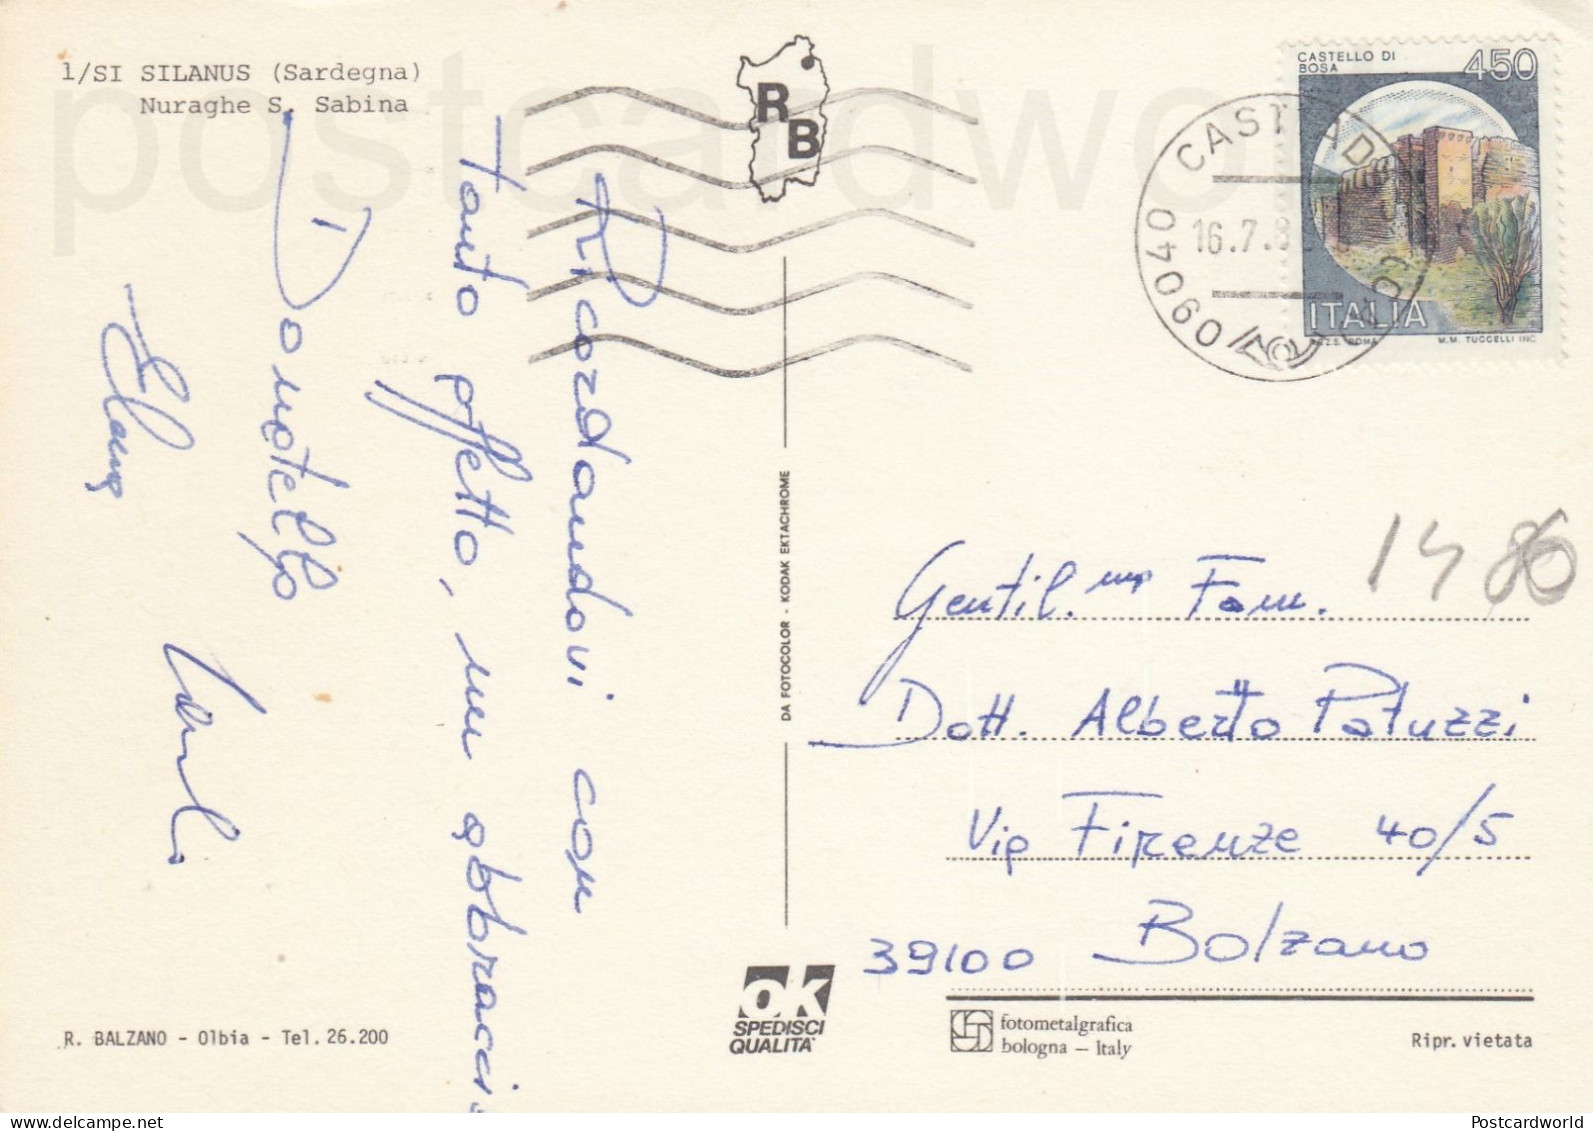 1/SI SILANUS (Sardegna)
Nuraghe S. Sabina
postcardwo
R
B
CASTELLO DI
BOSA
450
ITALIA
I.P.Z.S. ROMA
M.M. TUCCELLI INC.
CASTIADAS
16.7.8
09040
Ricordandovi con
tanto affetto, un abbraccio
Donatello
Elena
Carlo
DA FOTOCOLOR - KODAK EKTACHROME
1486
Gentil.ma Fam.
Dott. Alberto Patuzzi
Via Firenze 40/5
39100 Bolzano
R. BALZANO - Olbia - Tel. 26.200
OK
SPEDISCI
QUALITA'
fotometalgrafica
bologna – Italy
Ripr. vietata
delcampe.net
Postcardworld